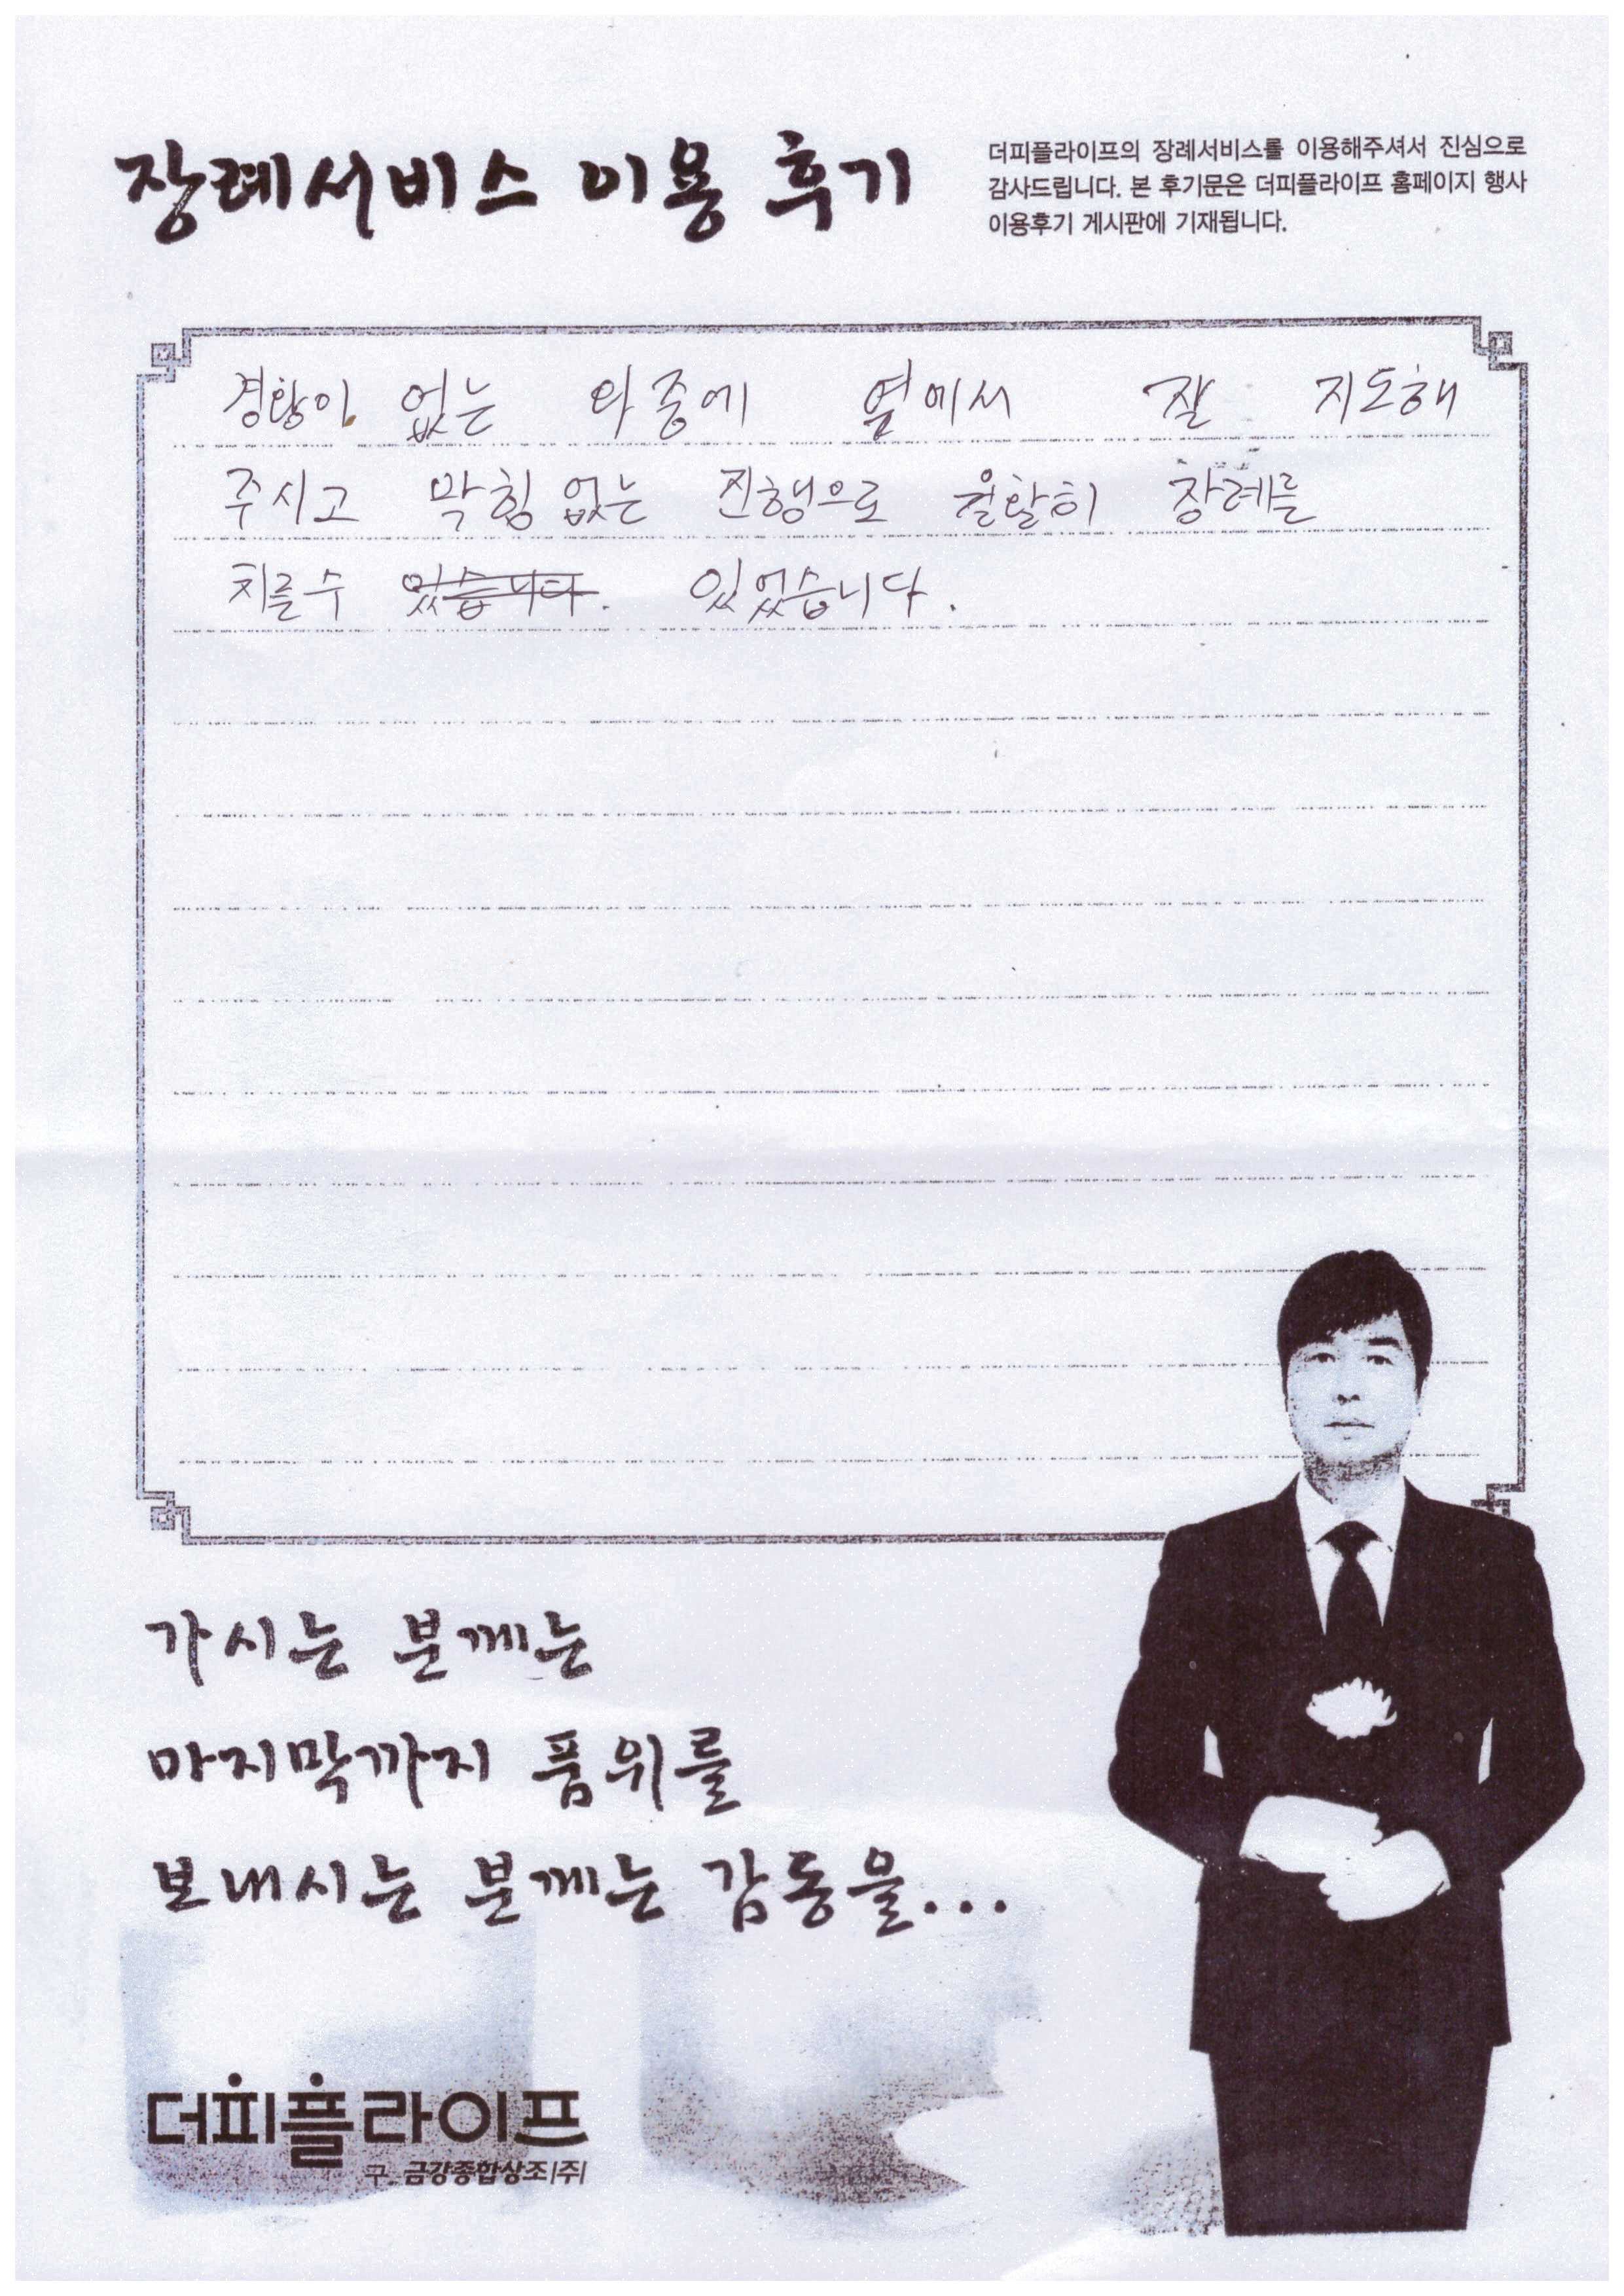 장례서비스 이용 후기
더피플라이프의 장례서비스를 이용해주셔서 진심으로
감사드립니다. 본 후기문은 더피플라이프 홈페이지 행사
이용후기 게시판에 기재됩니다.
경황이 없는 와중에 옆에서 잘 지도해
주시고 막힘 없는 진행으로 원활히 장례를
치를수 있습니다. 있었습니다.
가시는 분께는
마지막까지 품위를
보내시는 분께는 감동을...
더피플라이프
구. 금강종합상조|주|